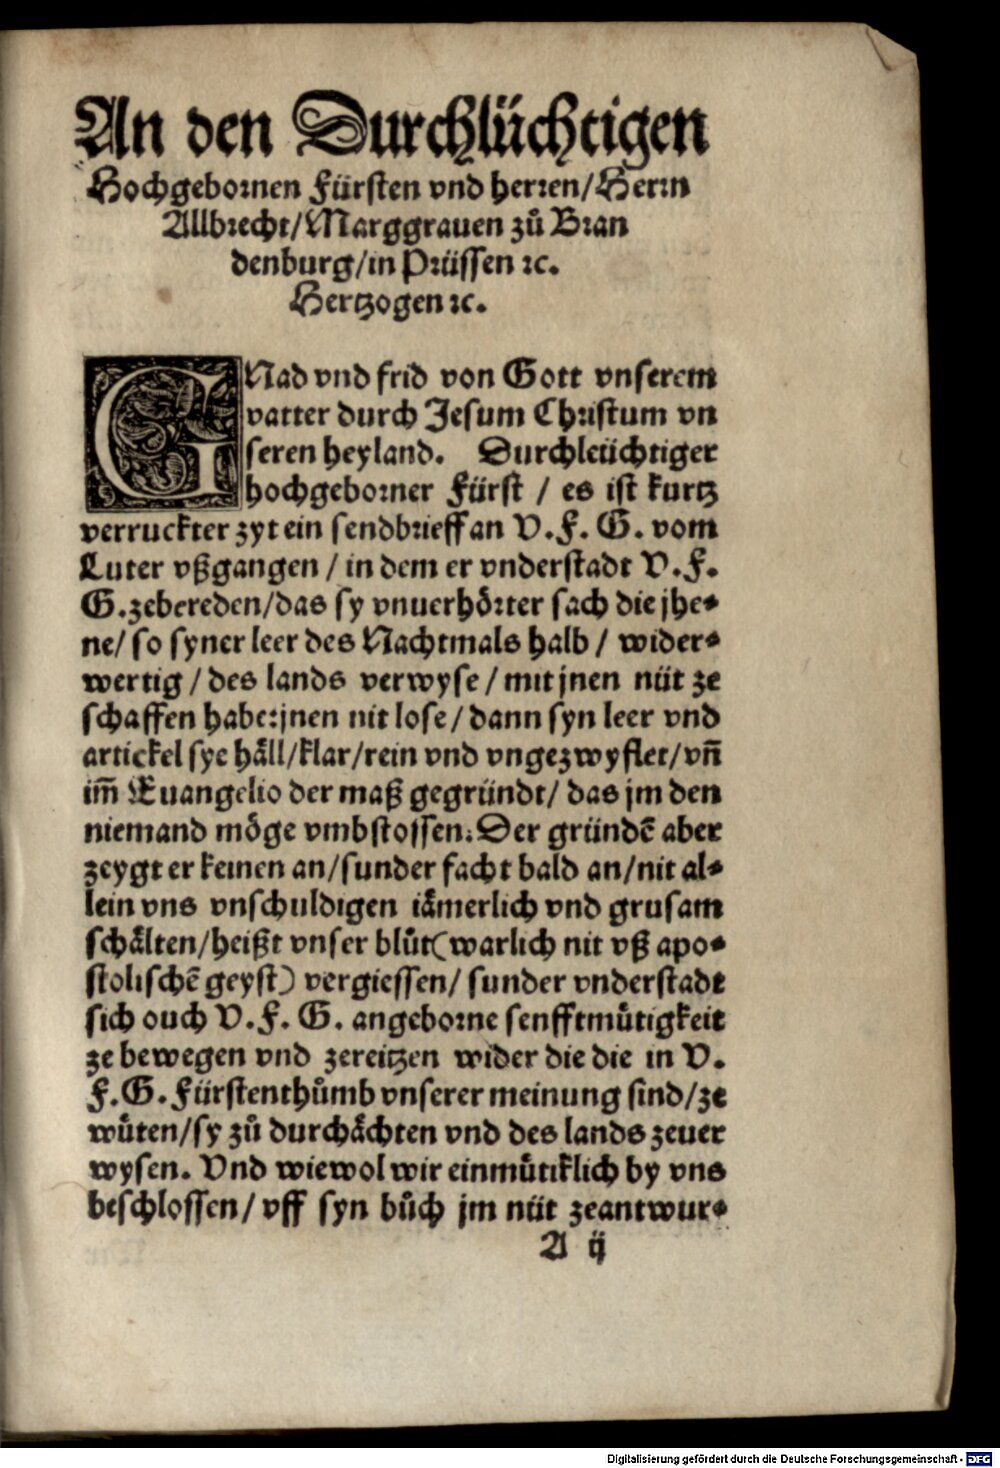 An den Durchlüchtigen
Hochgebornen Fürsten vnd herren/Herrn
Allbrecht/Marggrauen zů Bran
denburg/in Prüssen ꝛc.
Hertzogen ꝛc.
GNad vnd frid von Gott vnserem
vatter durch Jesum Christum vn
seren heyland. Durchleüchtiger
hochgeborner Fürst / es ist kurtz
verruckter zyt ein sendbrieff an V.F.G. vom
Luter vßgangen / in dem er vnderstadt V.F.
G.zebereden/das sy vnuerhörter sach die jhe⸗
ne/ so syner leer des Nachtmals halb / wider⸗
wertig / des lands verwyse / mit jnen nüt ze
schaffen habe:jnen nit lose/ dann syn leer vnd
artickel sye häll/klar/rein vnd vngezwyflet/vñ
im̃ Euangelio der maß gegründt/ das jm den
niemand möge vmbstossen. Der gründẽ aber
zeygt er keinen an/sunder facht bald an/nit al⸗
lein vns vnschuldigen iämerlich vnd grusam
schälten/heißt vnser blůt(warlich nit vß apo⸗
stolischẽ geyst) vergiessen/ sunder vnderstadt
sich ouch V.F.G. angeborne senfftmůtigkeit
ze bewegen vnd zereitzen wider die die in V.
F.G.Fürstenthůmb vnserer meinung sind/ze
wůten/sy zů durchächten vnd des lands zeuer
wysen. Vnd wiewol wir einmůtiklich by vns
beschlossen/ vff syn bůch jm nüt zeantwur⸗
A ij
Digitalisierung gefördert durch die Deutsche Forschungsgemeinschaft - DFG